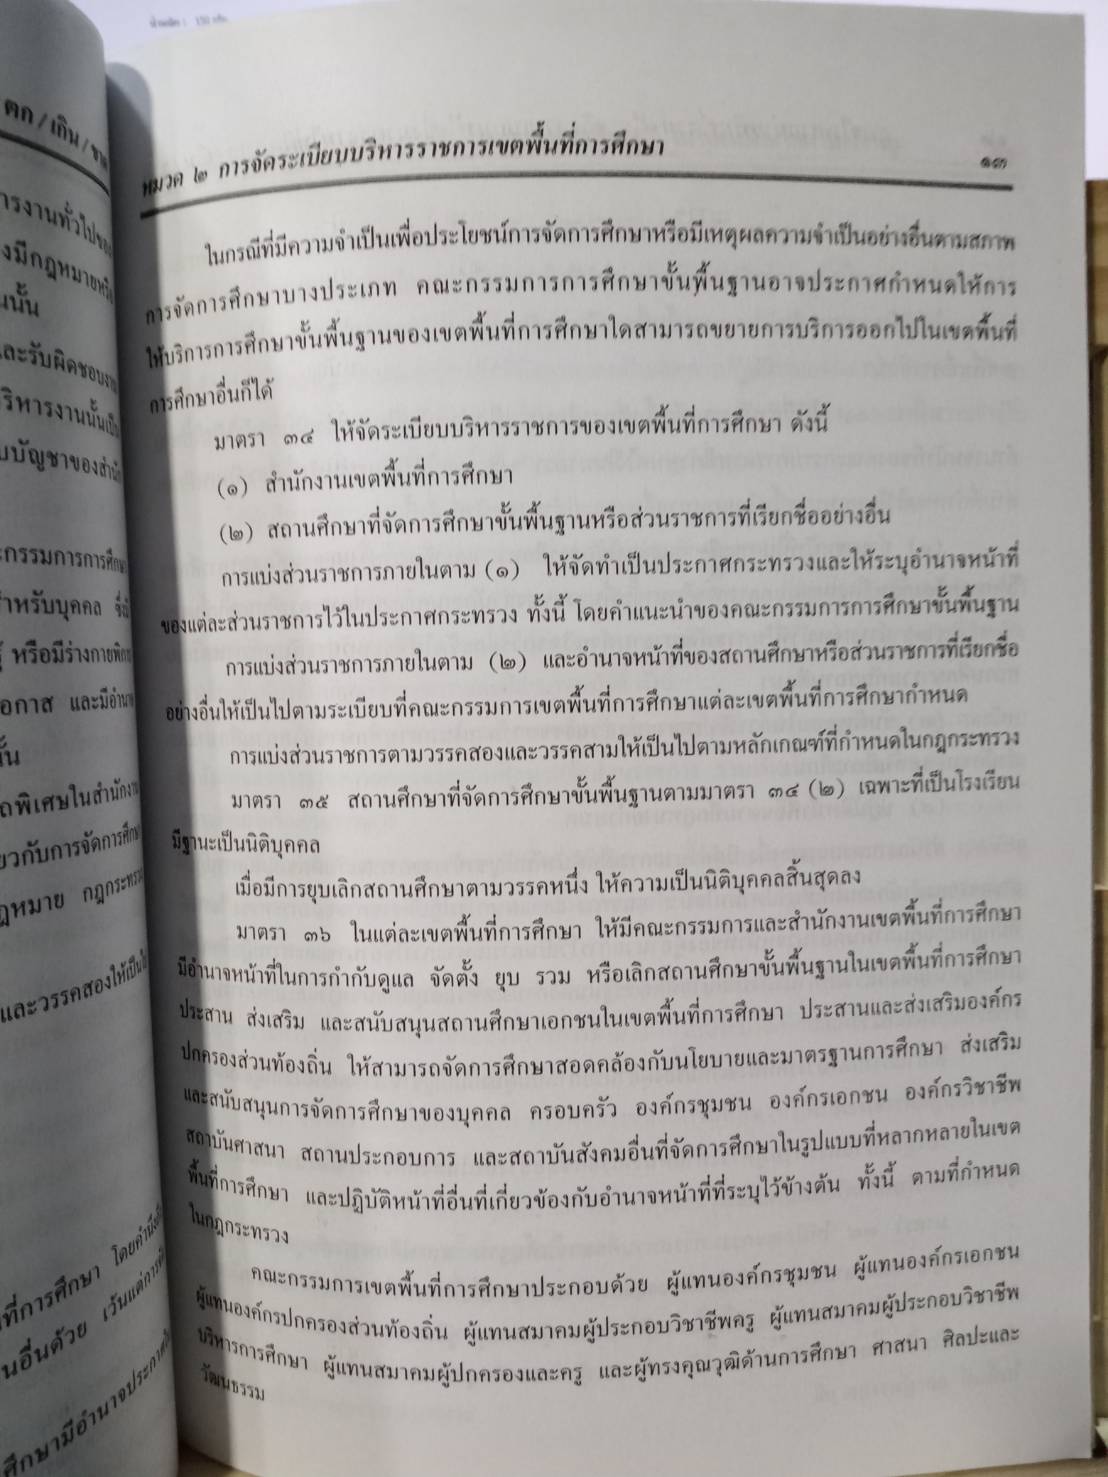 น้ำหนัก : 150 กรัม
ตก/เกิน/ขาด
ารงานทั่วไปของ
งมีกฎหมายหรือ
นนั้น
และรับผิดชอบงาน
ริหารงานนั้นเป็น
บบัญชาของสำนัก
ะกรรมการการศึกษา
สำหรับบุคคล ซึ่งมี
หรือมีร่างกายพิการ
อกาส และมีอำนาจ
นั้น
ถพิเศษในสำนักงาน
ยวกับการจัดการศึกษา
ฎหมาย กฎกระทรวง
และวรรคสองให้เป็นไป
ที่การศึกษา โดยคำนึงถึง
นอื่นด้วย เว้นแต่การจัด
ศึกษามีอำนาจประกาศ
หมวด ๒ การจัดระเบียบบริหารราชการเขตพื้นที่การศึกษา ๑๓
ในกรณีที่มีความจำเป็นเพื่อประโยชน์การจัดการศึกษาหรือมีเหตุผลความจำเป็นอย่างอื่นตามสภาพ
การจัดการศึกษาบางประเภท คณะกรรมการการศึกษาขั้นพื้นฐานอาจประกาศกำหนดให้การ
ให้บริการการศึกษาขั้นพื้นฐานของเขตพื้นที่การศึกษาใดสามารถขยายการบริการออกไปในเขตพื้นที่
การศึกษาอื่นก็ได้
มาตรา ๓๔ ให้จัดระเบียบบริหารราชการของเขตพื้นที่การศึกษา ดังนี้
(๑) สำนักงานเขตพื้นที่การศึกษา
(๒) สถานศึกษาที่จัดการศึกษาขั้นพื้นฐานหรือส่วนราชการที่เรียกชื่ออย่างอื่น
การแบ่งส่วนราชการภายในตาม (๑) ให้จัดทำเป็นประกาศกระทรวงและให้ระบุอำนาจหน้าที่
ของแต่ละส่วนราชการไว้ในประกาศกระทรวง ทั้งนี้ โดยคำแนะนำของคณะกรรมการการศึกษาขั้นพื้นฐาน
การแบ่งส่วนราชการภายในตาม (๒) และอำนาจหน้าที่ของสถานศึกษาหรือส่วนราชการที่เรียกชื่อ
อย่างอื่นให้เป็นไปตามระเบียบที่คณะกรรมการเขตพื้นที่การศึกษาแต่ละเขตพื้นที่การศึกษากำหนด
การแบ่งส่วนราชการตามวรรคสองและวรรคสามให้เป็นไปตามหลักเกณฑ์ที่กำหนดในกฎกระทรวง
มาตรา ๓๕ สถานศึกษาที่จัดการศึกษาขั้นพื้นฐานตามมาตรา ๓๔ (๒) เฉพาะที่เป็นโรงเรียน
มีฐานะเป็นนิติบุคคล
เมื่อมีการยุบเลิกสถานศึกษาตามวรรคหนึ่ง ให้ความเป็นนิติบุคคลสิ้นสุดลง
มาตรา ๓๖ ในแต่ละเขตพื้นที่การศึกษา ให้มีคณะกรรมการและสำนักงานเขตพื้นที่การศึกษา
มีอำนาจหน้าที่ในการกำกับดูแล จัดตั้ง ยุบ รวม หรือเลิกสถานศึกษาขั้นพื้นฐานในเขตพื้นที่การศึกษา
ประสาน ส่งเสริม และสนับสนุนสถานศึกษาเอกชนในเขตพื้นที่การศึกษา ประสานและส่งเสริมองค์กร
ปกครองส่วนท้องถิ่น ให้สามารถจัดการศึกษาสอดคล้องกับนโยบายและมาตรฐานการศึกษา ส่งเสริม
และสนับสนุนการจัดการศึกษาของบุคคล ครอบครัว องค์กรชุมชน องค์กรเอกชน องค์กรวิชาชีพ
สถาบันศาสนา สถานประกอบการ และสถาบันสังคมอื่นที่จัดการศึกษาในรูปแบบที่หลากหลายในเขต
พื้นที่การศึกษา และปฏิบัติหน้าที่อื่นที่เกี่ยวข้องกับอำนาจหน้าที่ที่ระบุไว้ข้างต้น ทั้งนี้ ตามที่กำหนด
ในกฎกระทรวง
คณะกรรมการเขตพื้นที่การศึกษาประกอบด้วย ผู้แทนองค์กรชุมชน ผู้แทนองค์กรเอกชน
ผู้แทนองค์กรปกครองส่วนท้องถิ่น ผู้แทนสมาคมผู้ประกอบวิชาชีพครู ผู้แทนสมาคมผู้ประกอบวิชาชีพ
บริหารการศึกษา ผู้แทนสมาคมผู้ปกครองและครู และผู้ทรงคุณวุฒิด้านการศึกษา ศาสนา ศิลปะและ
วัฒนธรรม